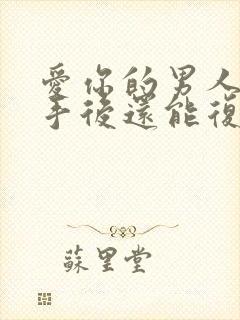 愛你的男人
手後還能復
蘇里堂